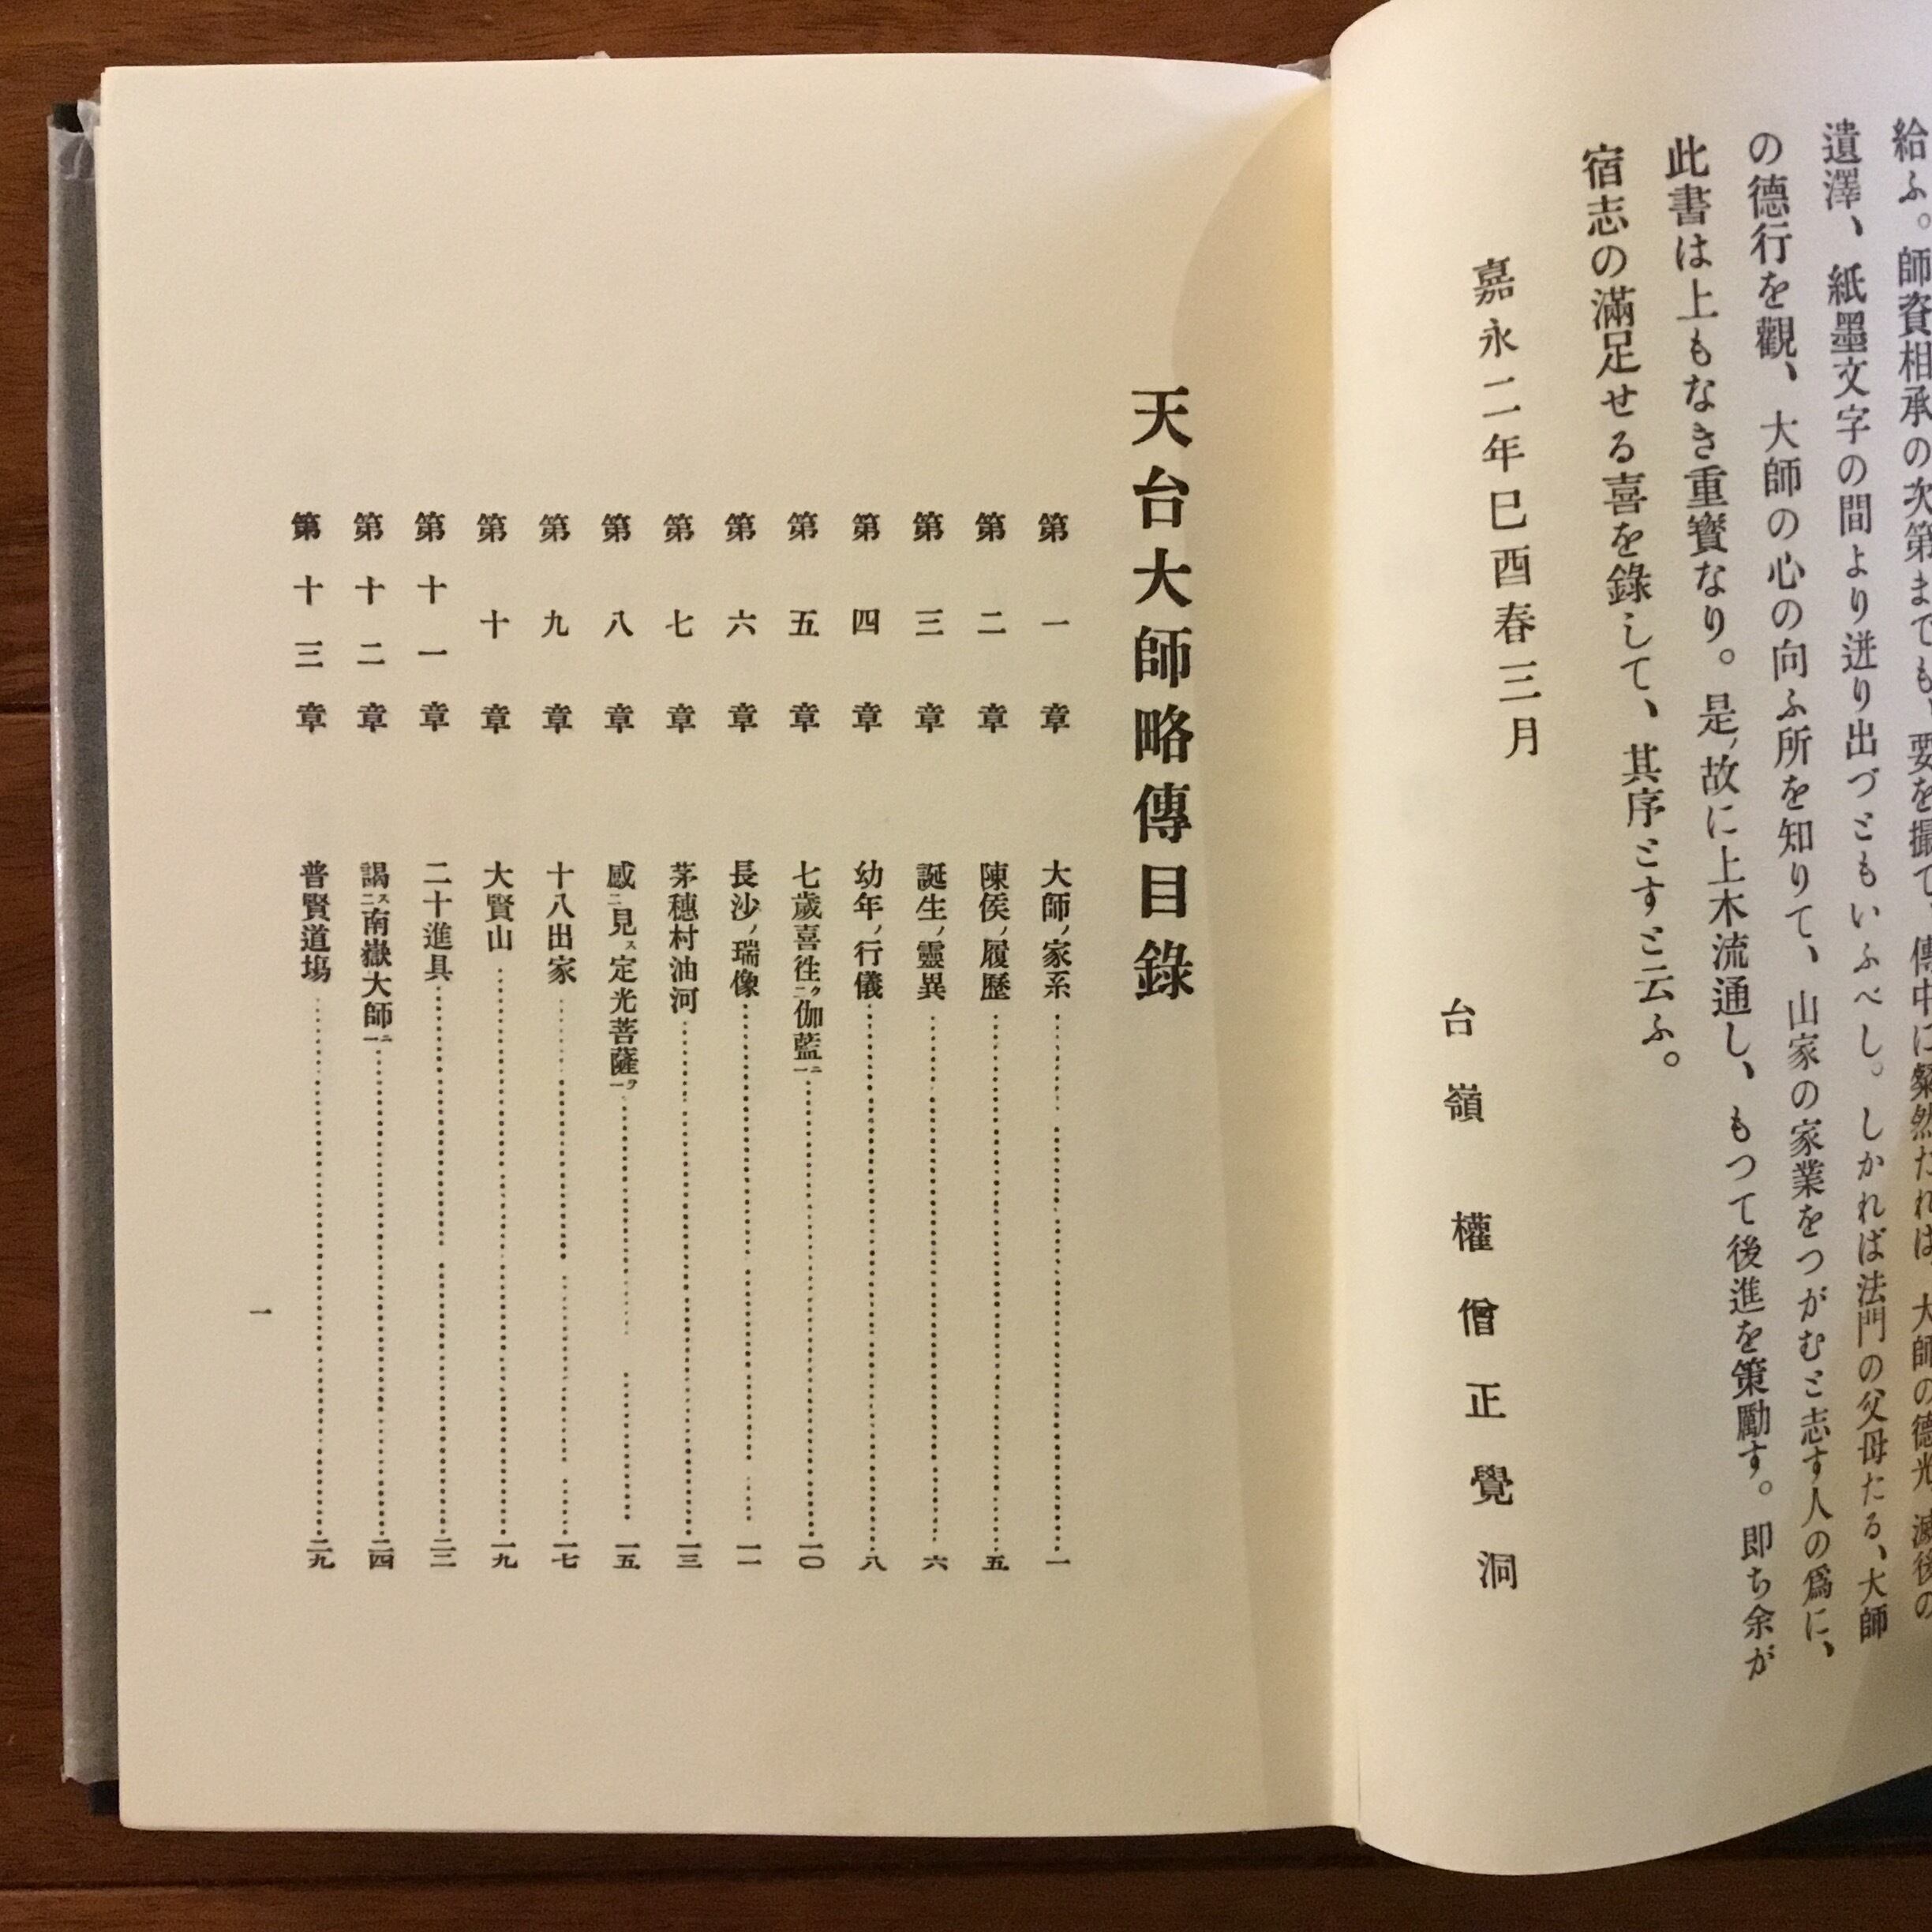 給ふ。師資相承の次第までも、要を撮て、傳中に粲然たれば、大師の德光 滅後の
遺澤、紙墨文字の間より迸り出づともいふべし。しかれば法門の父母たる、大師
の德行を觀、大師の心の向ふ所を知りて、山家の家業をつがむと志す人の爲に、
此書は上もなき重寶なり。是ノ故に上木流通し、もつて後進を策勵す。即ち余が
宿志の滿足せる喜を錄して、其序とすと云ふ。
嘉永二年巳酉春三月
台嶺 權僧正覺洞
天台大師略傳目錄
第一章 大師ノ家系……一
第二章 陳侯ノ履歷……五
第三章 誕生ノ靈異……六
第四章 幼年ノ行儀……八
第五章 七歲喜往二ク伽藍一ニ……一〇
第六章 長沙ノ瑞像……一一
第七章 茅穗村油河……一三
第八章 感二見ス定光菩薩一ヲ……一五
第九章 十八出家……一七
第十章 大賢山……一九
第十一章 二十進具……二二
第十二章 謁二ス南嶽大師一ニ……二四
第十三章 普賢道場……二九
一